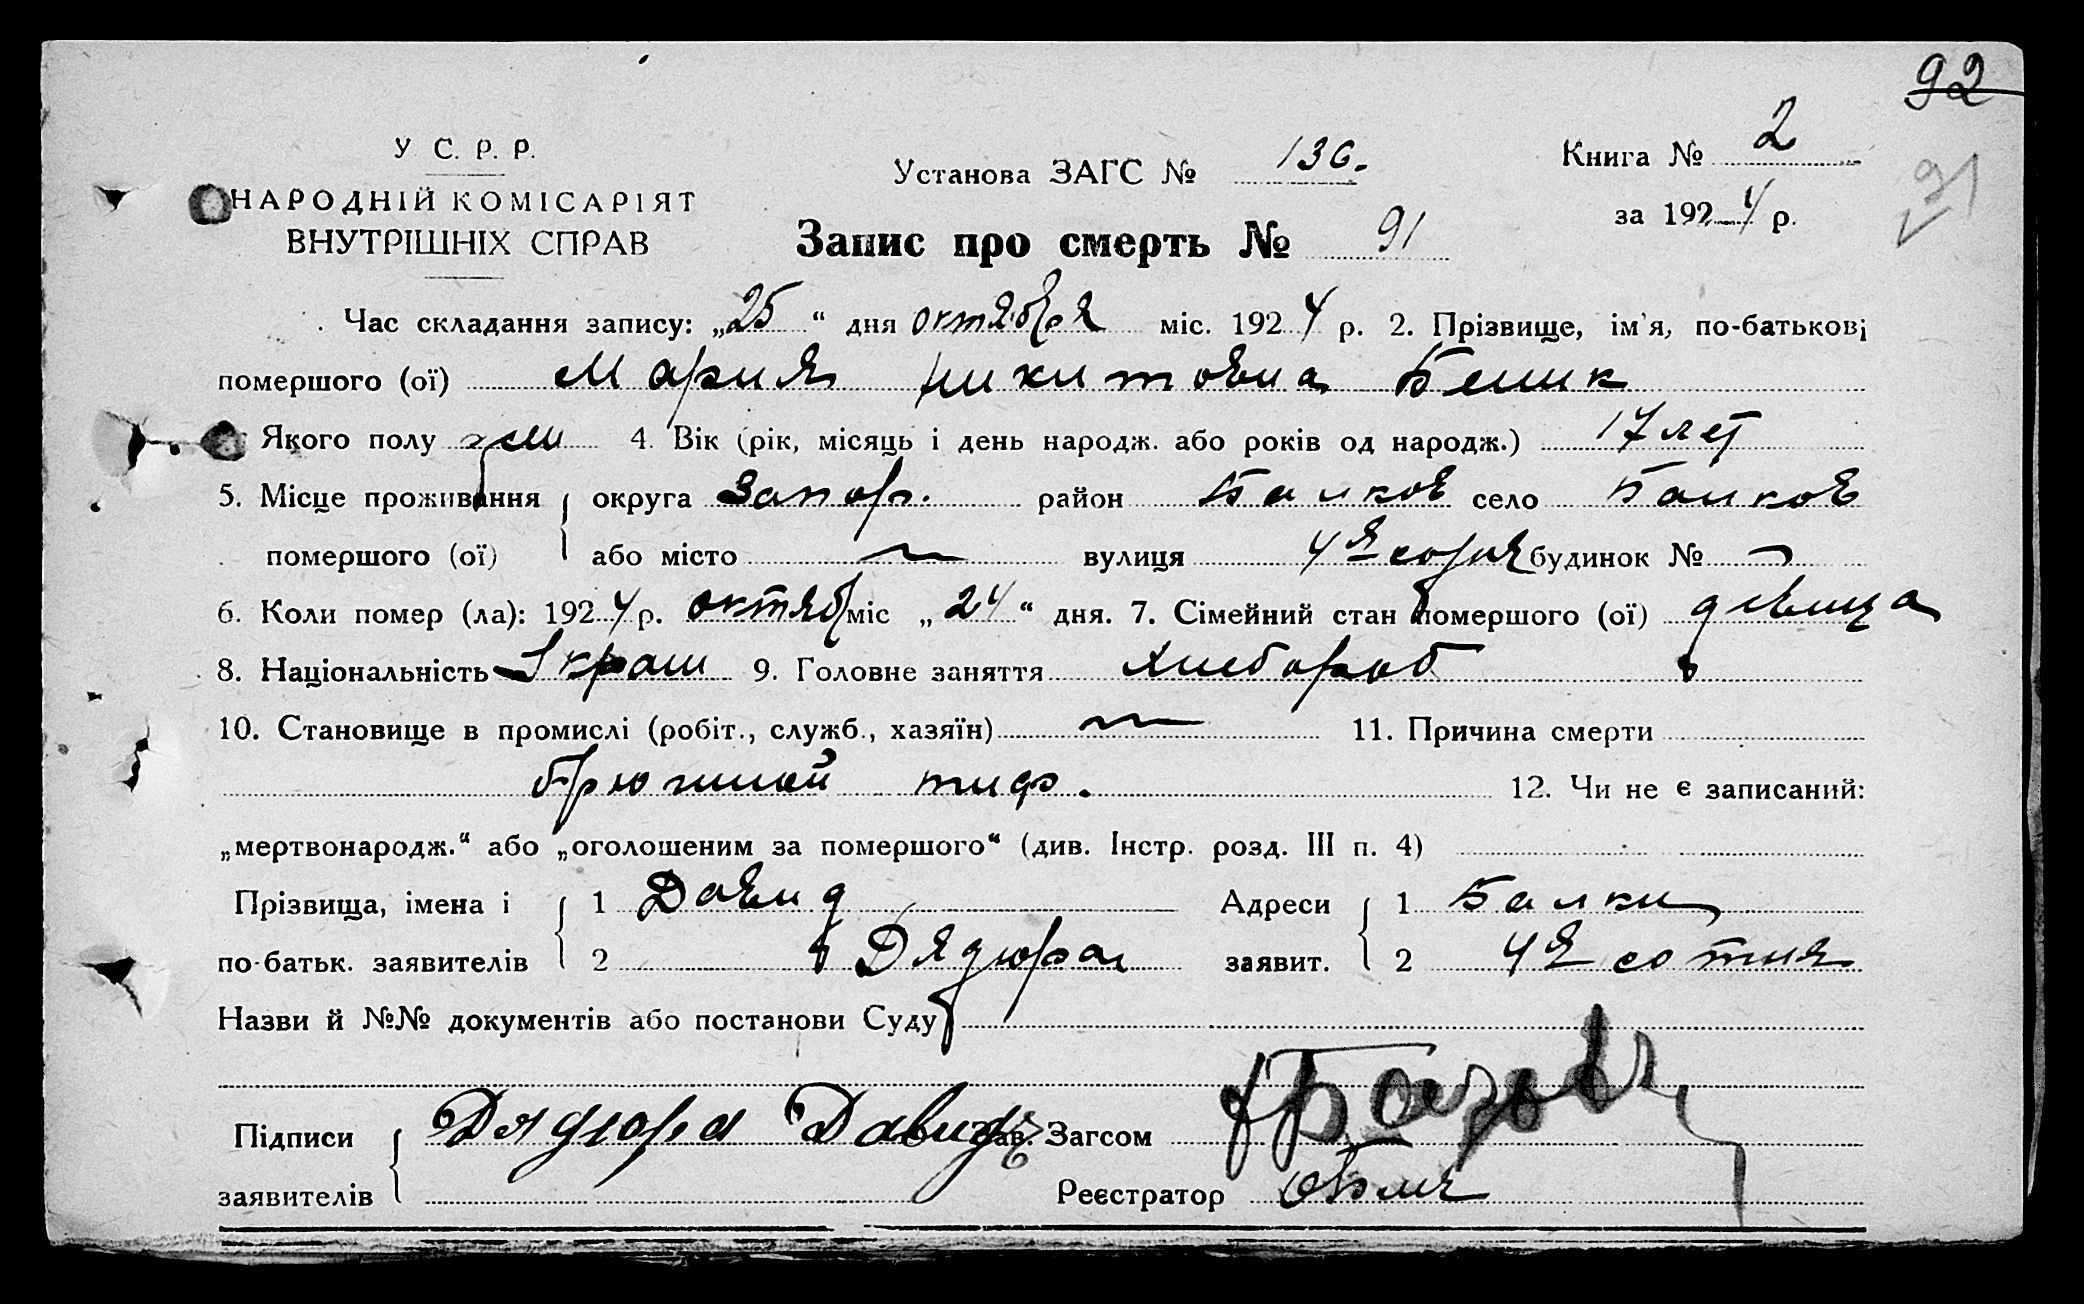 92
У. С. Р. Р.
НАРОДНІЙ КОМІСАРІЯТ
ВНУТРІШНІХ СПРАВ
Установа ЗАГС № 136.
Книга № 2
за 1924 р.
91
Запис про смерть № 91
Час складання запису: „25“ дня октября міс. 1924 р. 2. Прізвище, ім'я, по-батькові
помершого (ої) Мария Никитовна
Якого полу жен 4. Вік (рік, місяць і день народж. або років од народж.) 17 лет
5. Місце проживання округа Запор. район Балков село Балков
помершого (ої) або місто — вулиця 4я сотня будинок № —
6. Коли помер (ла): 1924 р. октяб міс „24“ дня. 7. Сімейний стан помершого (ої) девица
8. Національність 9. Головне заняття хлебороб
10. Становище в промислі (робіт., служб., хазяїн) — 11. Причина смерти
брюшной тиф. 12. Чи не є записаний:
„мертвонародж.“ або „оголошеним за помершого“ (див. Інстр. розд. III п. 4)
Прізвища, імена і 1 Давид Адреси 1 Балки
по-батьк. заявителів 2 Дядюра заявит. 2 4я сотня
Назви й №№ документів або постанови Суду
Підписи Дядюра Давид Зав. Загсом
заявителів Реєстратор